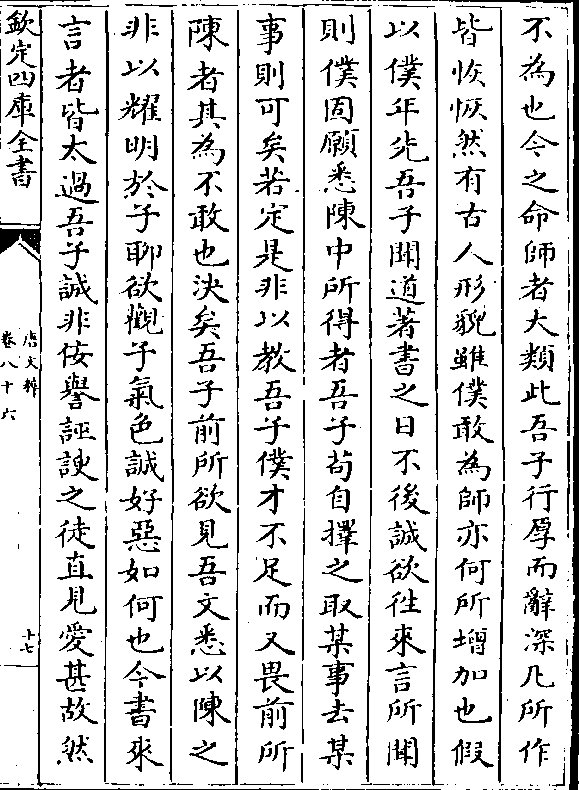 不為也今之命師者大類此吾子行厚而辭深凡所作
皆恢恢然有古人形貌雖僕敢為師亦何所增加也假
以僕年先吾子聞道著書之日不後誠欲徃來言所聞
則僕固願悉陳中所得者吾子苟自擇之取某事去某
事則可矣若定是非以教吾子僕才不足而又畏前所
陳者其為不敢也決矣吾子前所欲見吾文悉以陳之
非以耀明於子聊欲觀子氣色誠好惡如何也今書來
言者皆太過吾子誠非佞譽誣諛之徒直見愛甚故然
欽定四庫全書
唐文粹
卷八十六
十七